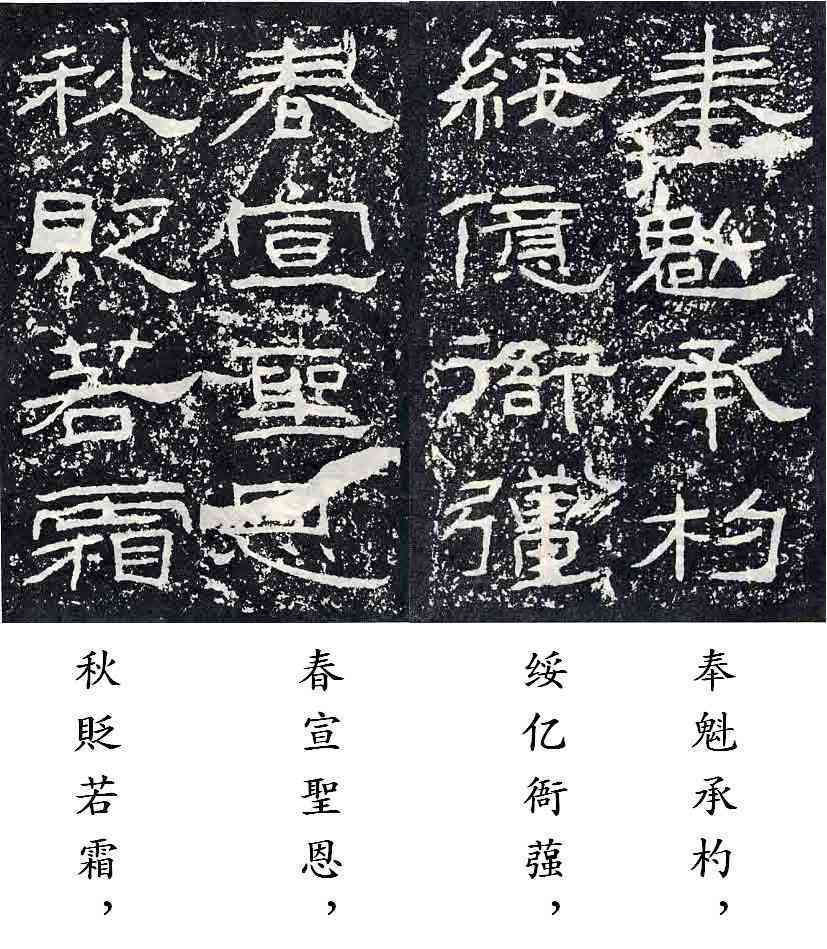 奉魁承杓
綏億衙彊
春宣聖恩
秋貶若霜
奉魁承杓，
绥亿衙，
春宣聖恩，
秋貶若霜，